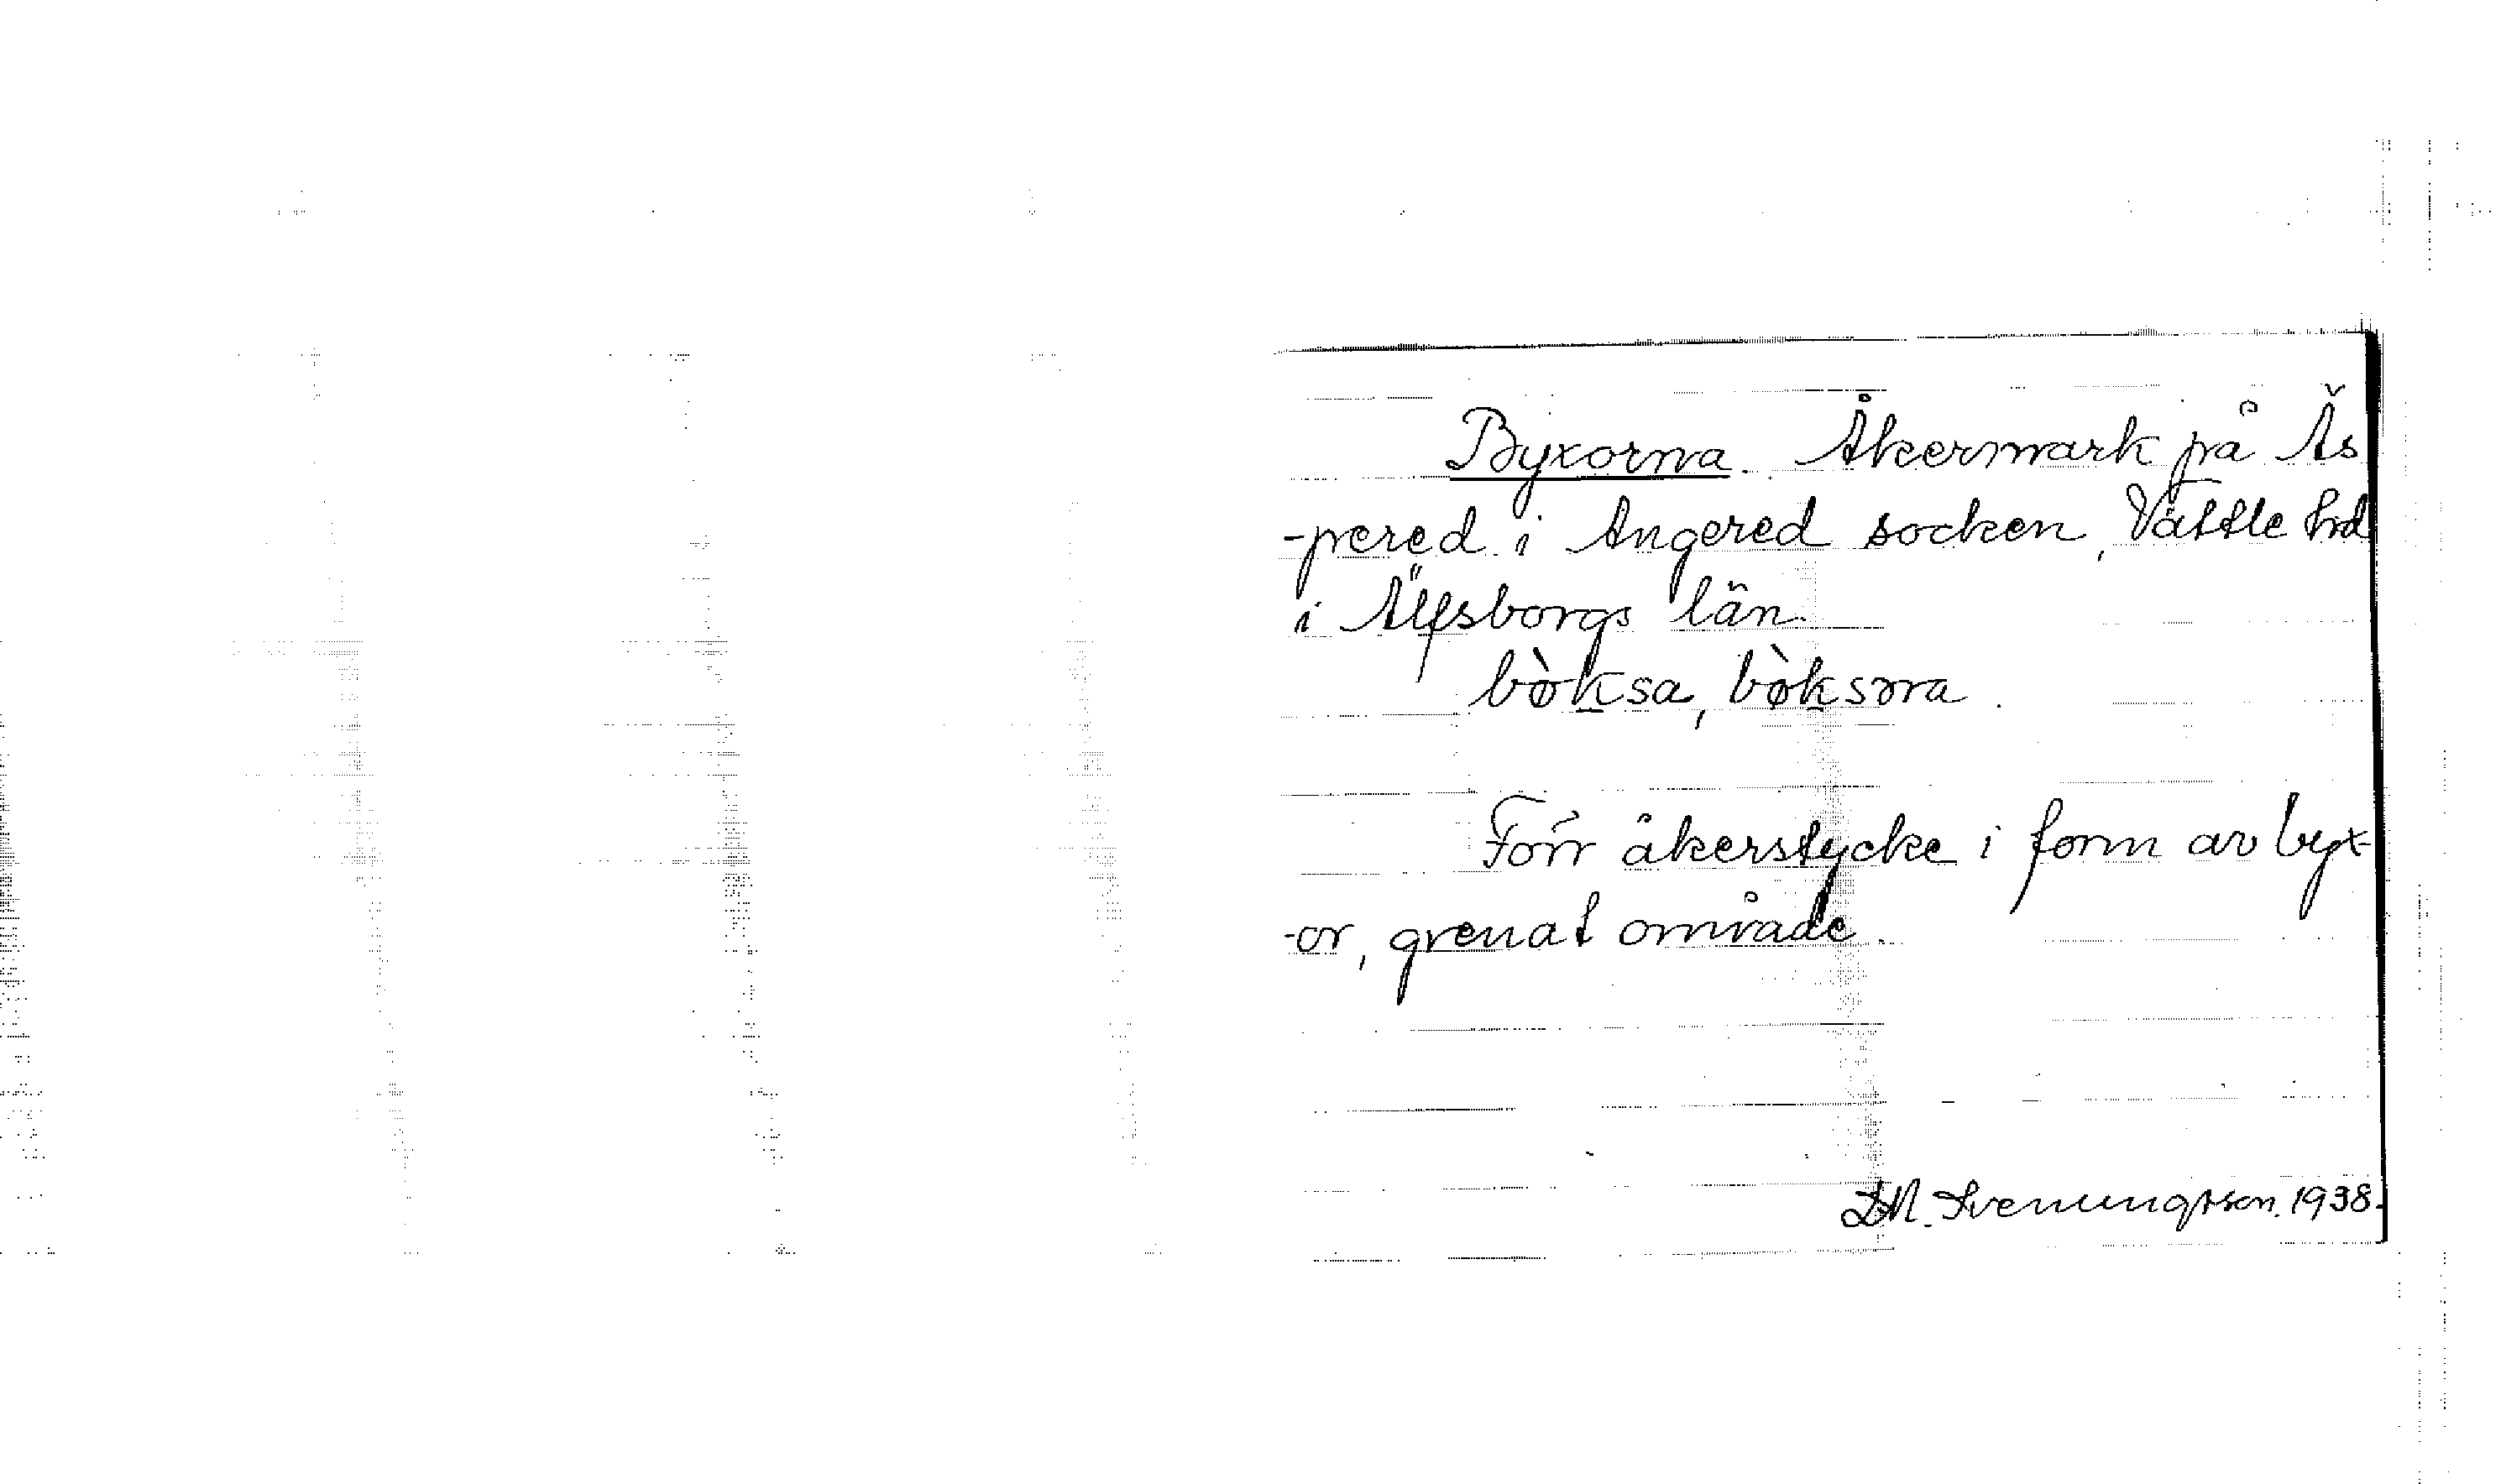 Byxorna. Åkermark på Äs
-pered i Angered socken, Vättle hd
i Älfsborgs län.
bø̀ksa, bø̀ksɔrna.
Förr åkerstycke i form av byx-
-or, grenat område.
D.N. Svenungsson. 1938.